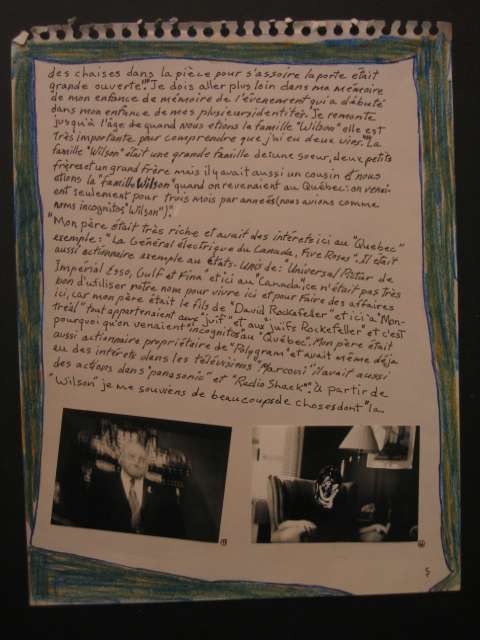 des chaises dans la pièce pour s'assoire la porte était
grande ouverte". Je dois aller plus loin dans ma mémoire
de mon enfance de mémoire de l'évenement qui a débuté
dans mon enfance de mes plusieurs identiter. Je remonte
jusqu'à l'âge de quand nous etions la famille "Wilson" elle est
Très importante pour comprendre que j'ai eu deux vies. "La
famille "Wilson" était une grande famille de: une soeur, deux petits
frères et un grand frère mais il y avait aussi un cousin et nous
etions la "famille Wilson" quand on revenait au Québec: on venai-
ent seulement pour trois mois par années (nous avions comme
noms incognitos "Wilson")".
"Mon père était très riche et avait des intérets ici au "Quebec"
exemple: "La Général électrique du Canada, Five Roses". Il était
aussi actionnaire exemple au États-Unis de: "Universal Pictur de
Impérial Esso, Gulf et Fina" et ici au "Canada", ce n'était pas Très
bon d'utiliser notre nom pour vivre ici et pour faire des affaires
ici, car mon père était le fils de "David Rockafeller" et ici "à "Mon-
tréal" tout appartenait aux "juif" et aux "juifs Rockefeller" et c'est
pourquoi qu'on venaient "incognitos" au "Québec". Mon père était
aussi actionnaire propriétaire de "Polygram" et avait même déja
eu des intérets dans les télévisions "Marconi", il avait aussi
des actions dans "panasonic" et "Radio Shack". À partir de
"Wilson" je me souviens de beaucoups de choses dont "la
5